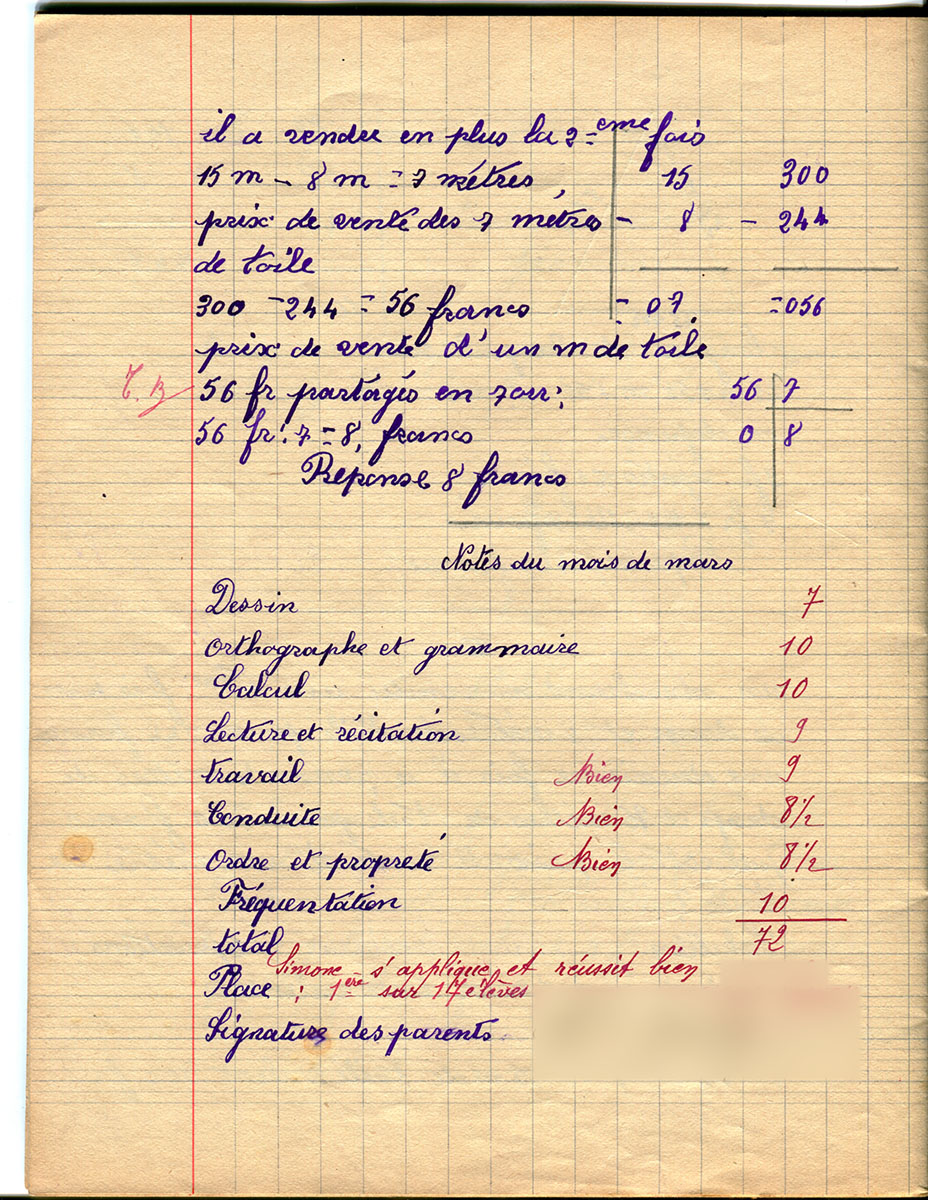 il a vendu en plus la 2=eme fois
15 m - 8 m = 7 mètres 15 300
prix de vente des 7 mètres - 8 - 244
de toile
300 - 244 = 56 francs = 07 = 056
prix de vente d'un m de toile
T. B 56 fr partagés en 7 56 7
56 fr : 7 = 8, francs 0 8
Réponse 8 francs
Notes du mois de mars
Dessin 7
Orthographe et grammaire 10
Calcul 10
Lecture et récitation 9
travail Bien 9
Conduite Bien 8 1/2
Ordre et propreté Bien 8 1/2
Fréquentation 10
total 72
Simone s'applique et réussit bien
Place : 1ère sur 17 élèves
Signature des parents